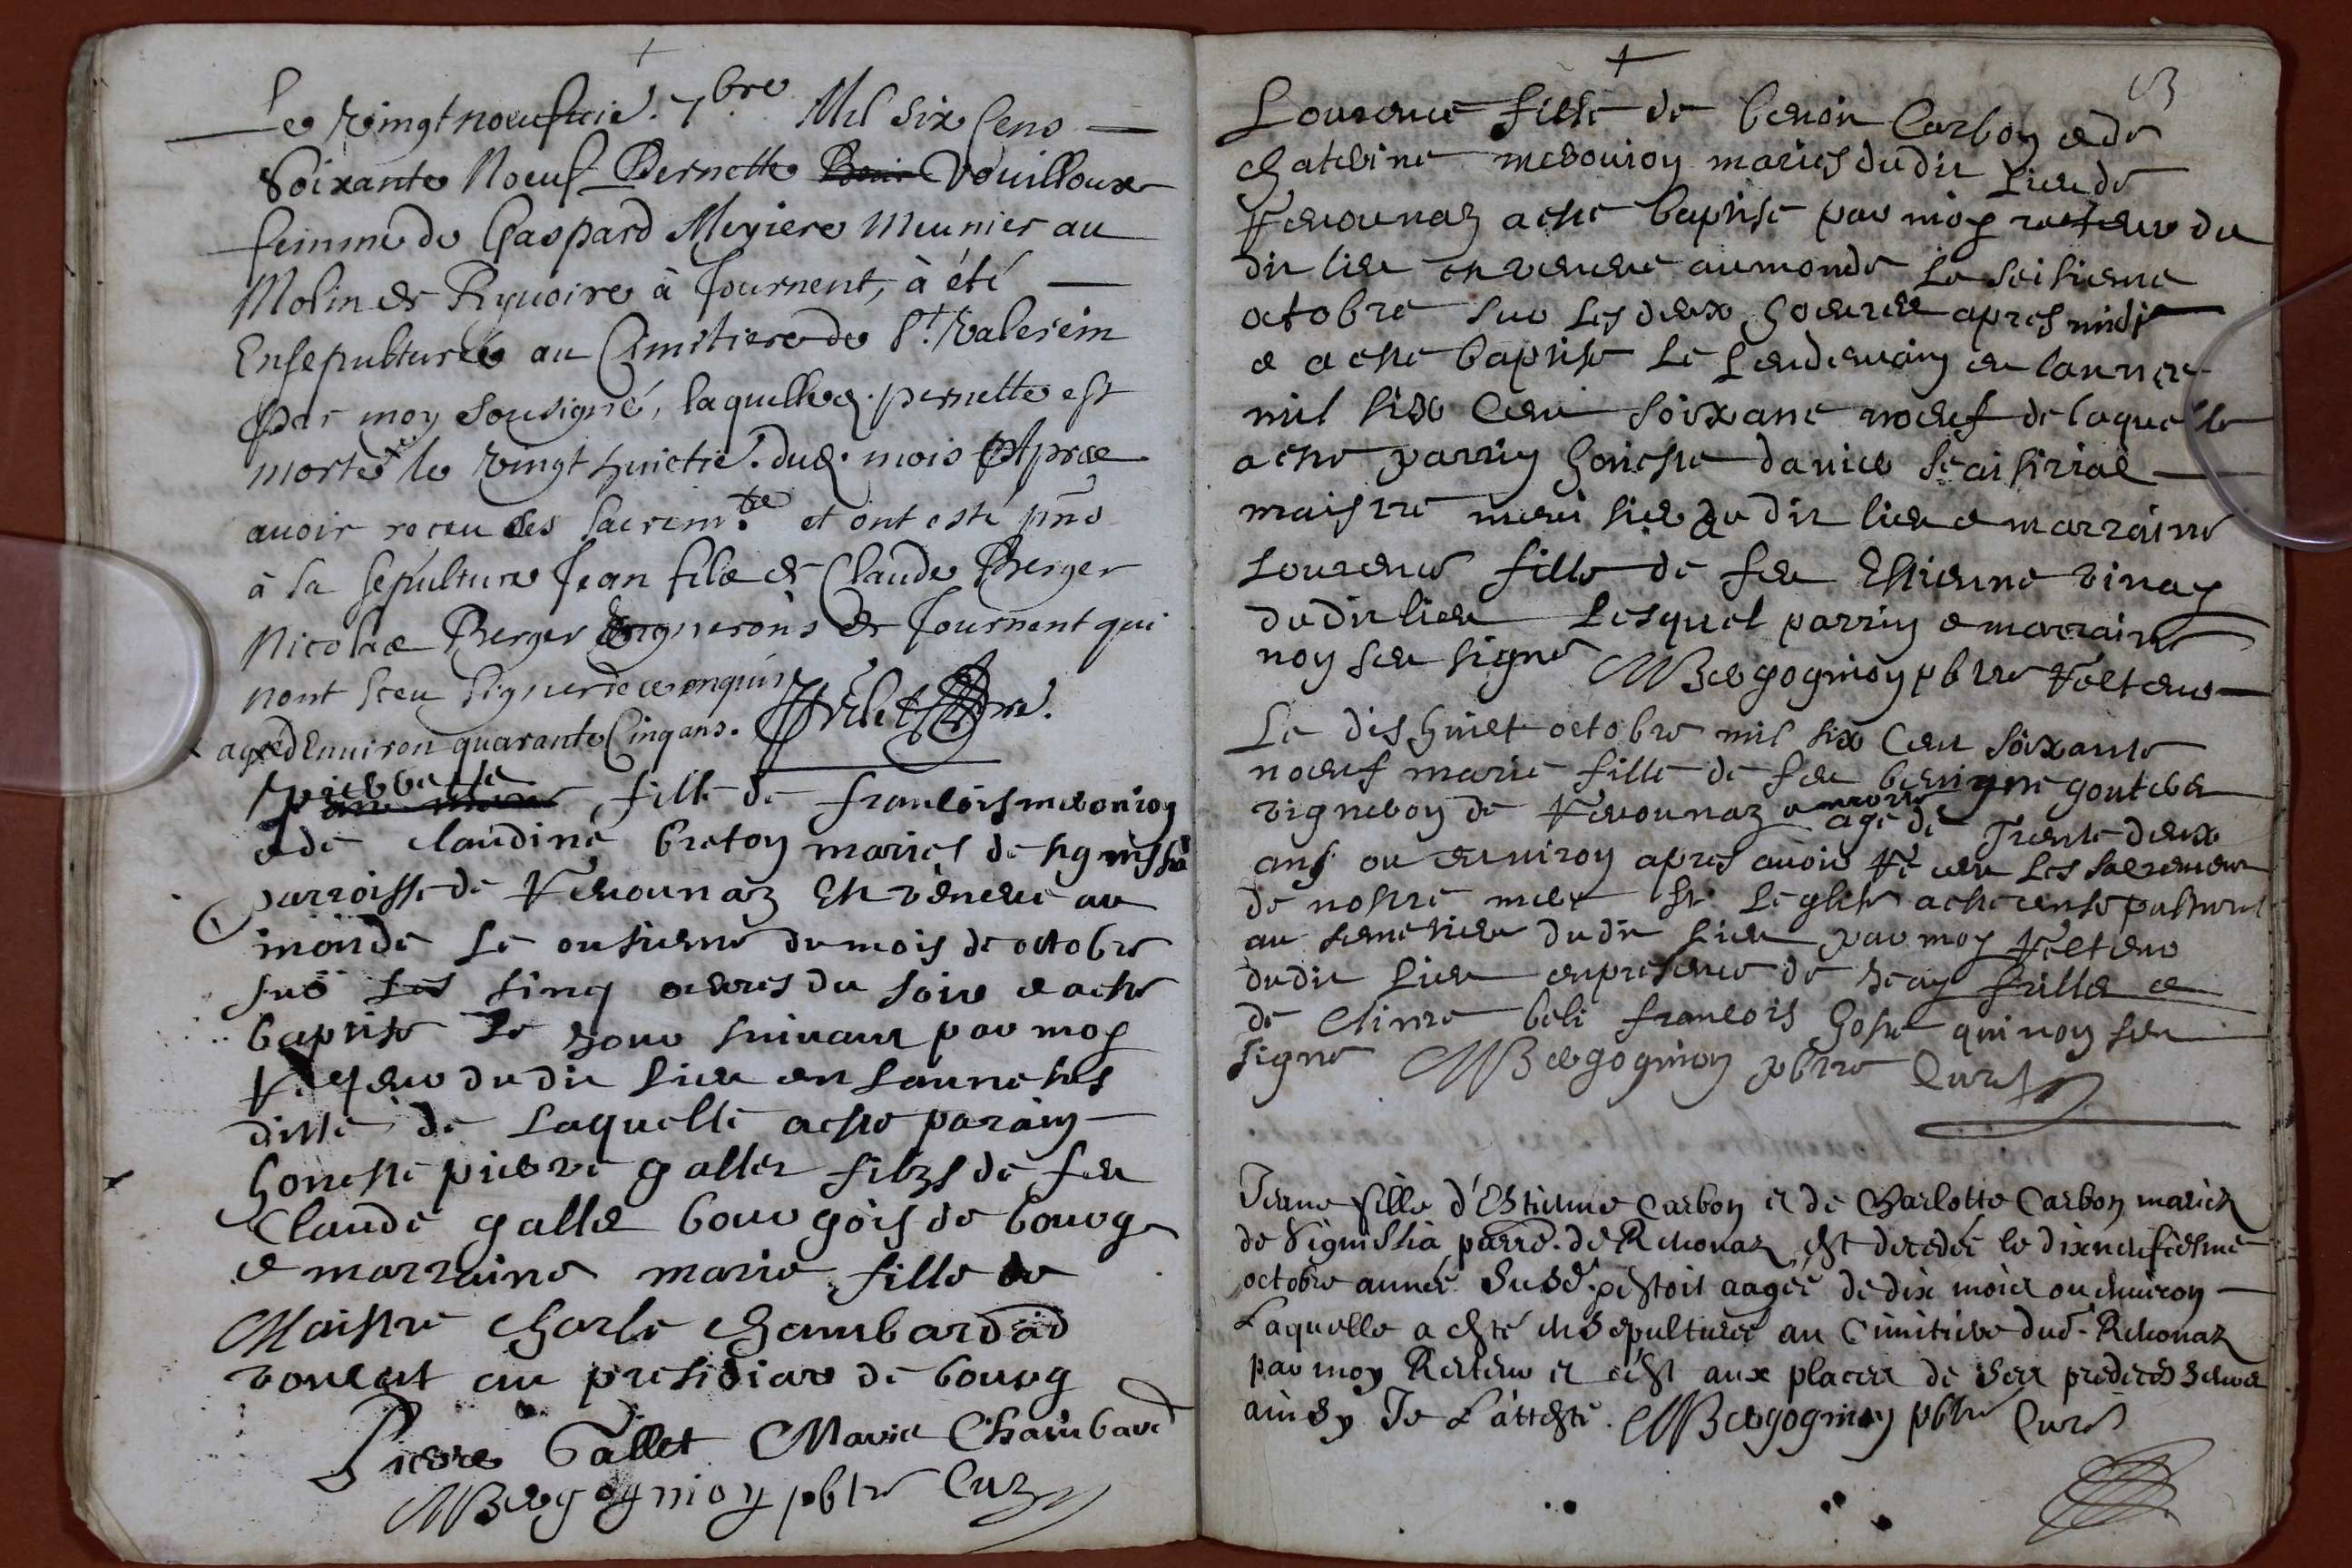 Le vingt noeufvie. 7bre Mil six cens
Soixante Noeuf Pernette Vouilloux
femme de Gaspard Megiere Meunier au
Molin de Ryvoire à Journent, à été
Ensepulturée au Cimitiere de St. Valerein
par moy sousigné, laquelle d. pernette est
morte le vingt huictie. dud. mois Apres
avoir receu les sacremts et ont esté pns
à la sepulture Jean fils de Claude Berger
Nicolas Berger vignerons de Journent qui
nont sceu signer de ce enquis
agée d'Environ quarante Cinq ans.
pierrette
fille de francois meronion
e de claudine breton mariés de signissia
parroisse de Revounaz Est veneue au
monde le onsieme du mois de octobre
sus les sinq oeures du soir e a este
baptise le jour suivant par moy
Recteur du dit lieu en lanne sus
ditte de laquelle a este parain
honeste pierre galler filz de feu
Claude galle bourgois de bourg
e marraine marie fille de
Maistre charle chambard ad
voucat au presidiar de bourg
Pierre Gallet Marie Chambard
MBergognion pbtre Curé
Lourence fille de benoit Carbon e de
chaterine merouion mariés du dit Lieu de
Revounaz a este baptise par moy recteur du
dit lieu est veneue au monde le seisieme
octobre sur les deux hoeures apres midi
e a este baptise le lendemain en lannee
mil six cent soixante noeuf de laquelle
a este parrin honeste
maistre du dit lieu e marraine
Lourence fille de feu Estienne vinay
du dit lieu lesquel parrin e marraine
noy seu signé MBergognion pbtre Recteur
Le dishuict octobre mil six cent soixante
noeuf marie fille de feu benigne goutelet
vigneron de Revounaz e morte age de Trente deux
ans ou environ apres avoir receu les sacremens
de nostre mere ste leglise a este ensepulturé
au semetiere du dit lieu par moy Recteur
du dit lieu en presence de Jean
de francois qui noy seu
signé MBergognion pbtre Curé
Jenne fille d'Estienne Carbon et de Charlotte Carbon mariez
de Signissia parre. de Revonaz est decedée le dixneufiesme
octobre année Susd. estoit aagée de dix mois ou environ
Laquelle a esté ensepulturée au Cimitiere dud. Revonaz
par moy Recteur et c'est aux places de ses predecesseurs
ainsy Je L'atteste. MBergognion pbtre Curé